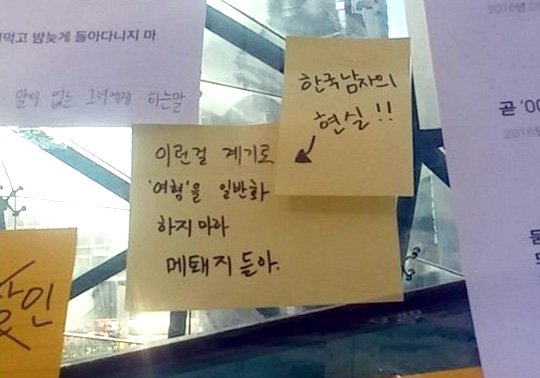 먹고 밤늦게 돌아다니지 마
말이 없는 그녀에게 하는말
한국남자의
현실!!
이런걸 계기로
'여혐'을 일반화
하지 마라
메퇘지 들아.
곧 '00
2016